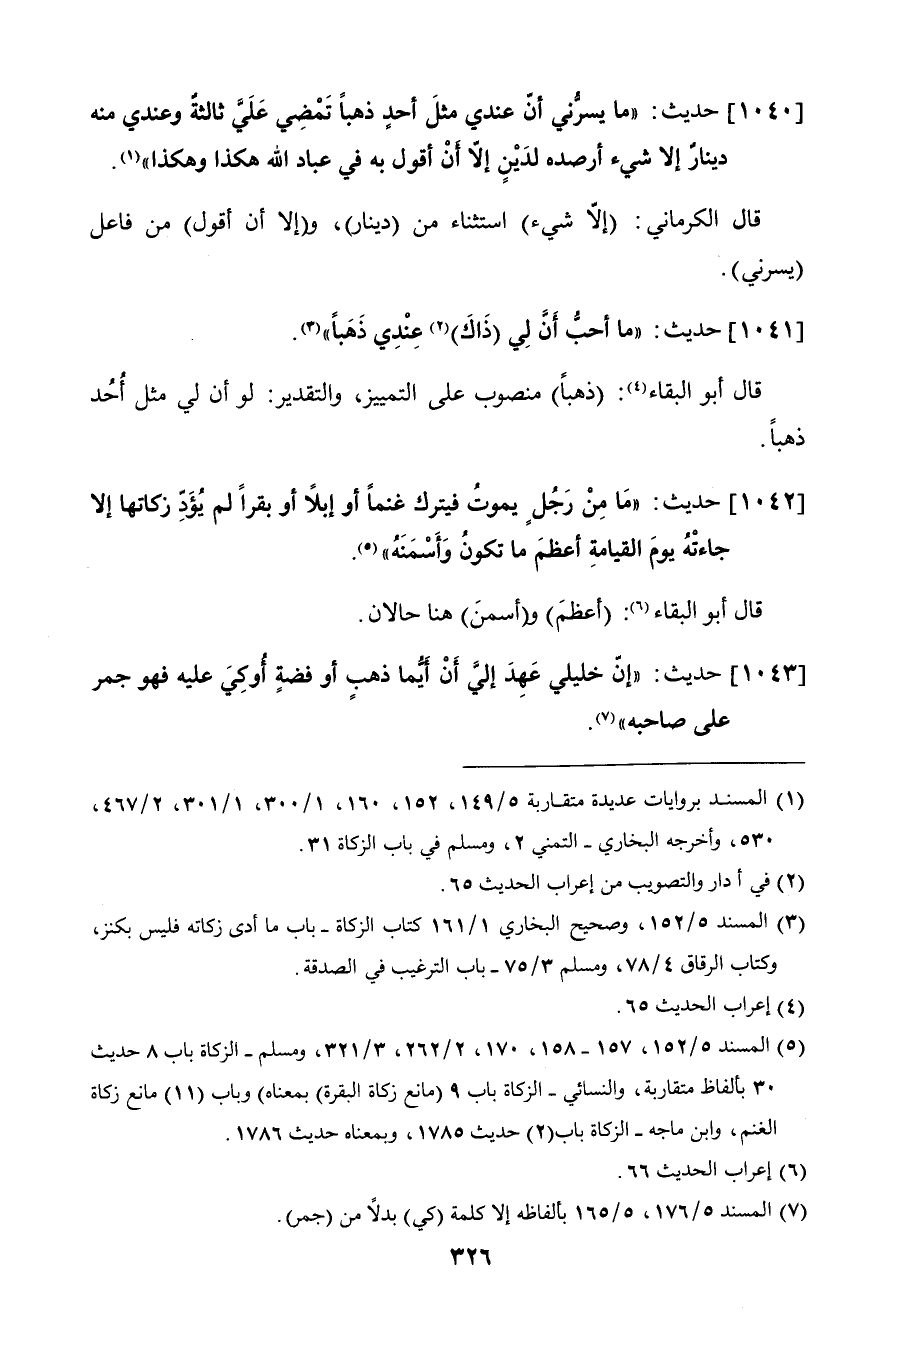 [١٠٤٠] حديث: «ما يسرُّني أنّ عندي مثلَ أحدٍ ذهباً تَمْضِي عَلَيَّ ثالثةٌ وعندي منه
دينارٌ إلا شيء أرصده لدَيْنٍ إلاّ أَنْ أقول به في عباد الله هكذا وهكذا»(١).
قال الكرماني: (إلاّ شيء) استثناء من (دينار)، و(إلا أن أقول) من فاعل
(يسرني).
[١٠٤١] حديث: «ما أحبُّ أَنَّ لِي (ذَاكَ)(٢) عِنْدِي ذَهَباً»(٣).
قال أبو البقاء(٤): (ذهباً) منصوب على التمييز، والتقدير: لو أن لي مثل أُحُد
ذهباً.
[١٠٤٢] حديث: «مَا مِنْ رَجُلٍ يموتُ فيترك غنماً أو إبلًا أو بقراً لم يُؤَدِّ زكاتها إلا
جاءتْهُ يومَ القيامةِ أعظمَ ما تكونُ وَأَسْمَنَهُ»(٥).
قال أبو البقاء(٦): (أعظمَ) و(أسمنَ) هنا حالان.
[١٠٤٣] حديث: «إنّ خليلي عَهِدَ إليَّ أَنْ أَيُّما ذهبٍ أو فضةٍ أُوكِيَ عليه فهو جمر
على صاحبه»(٧).
(١) المسند بروايات عديدة متقاربة ١٤٩/٥، ١٥٢، ١٦٠، ٣٠٠/١، ٣٠١/١، ٤٦٧/٢،
٥٣٠، وأخرجه البخاري ـ التمني ٢، ومسلم في باب الزكاة ٣١.
(٢) في أ دار والتصويب من إعراب الحديث ٦٥.
(٣) المسند ١٥٢/٥، وصحيح البخاري ١٦١/١ كتاب الزكاة ـ باب ما أدى زكاته فليس بكنز،
وكتاب الرقاق ٧٨/٤، ومسلم ٧٥/٣ ـ باب الترغيب في الصدقة.
(٤) إعراب الحديث ٦٥.
(٥) المسند ١٥٢/٥، ١٥٧ ـ ١٥٨، ١٧٠، ٢٦٢/٢، ٣٢١/٣، ومسلم ـ الزكاة باب ٨ حديث
٣٠ بألفاظ متقاربة، والنسائي ـ الزكاة باب ٩ (مانع زكاة البقرة) بمعناه) وباب (١١) مانع زكاة
الغنم، وابن ماجه ـ الزكاة باب(٢) حديث ١٧٨٥، وبمعناه حديث ١٧٨٦.
(٦) إعراب الحديث ٦٦.
(٧) المسند ١٧٦/٥، ١٦٥/٥ بألفاظه إلا كلمة (كي) بدلاً من (جمر).
٣٢٦